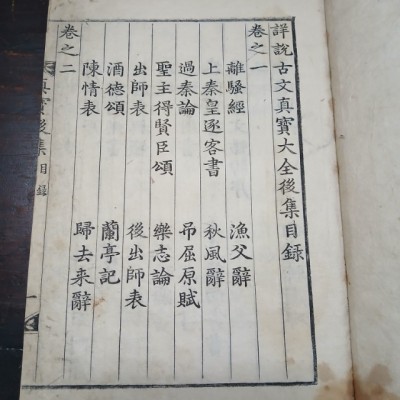 詳説古文真寳大全後集目錄
卷之一
離騷經 漁父辭
上秦皇逐客書 秋風辭
過秦論 吊屈原賦
聖主得賢臣頌 樂志論
出師表 後出師表
酒德頌 蘭亭記
陳情表 歸去来辭
卷之二
真寳後集 目錄 一